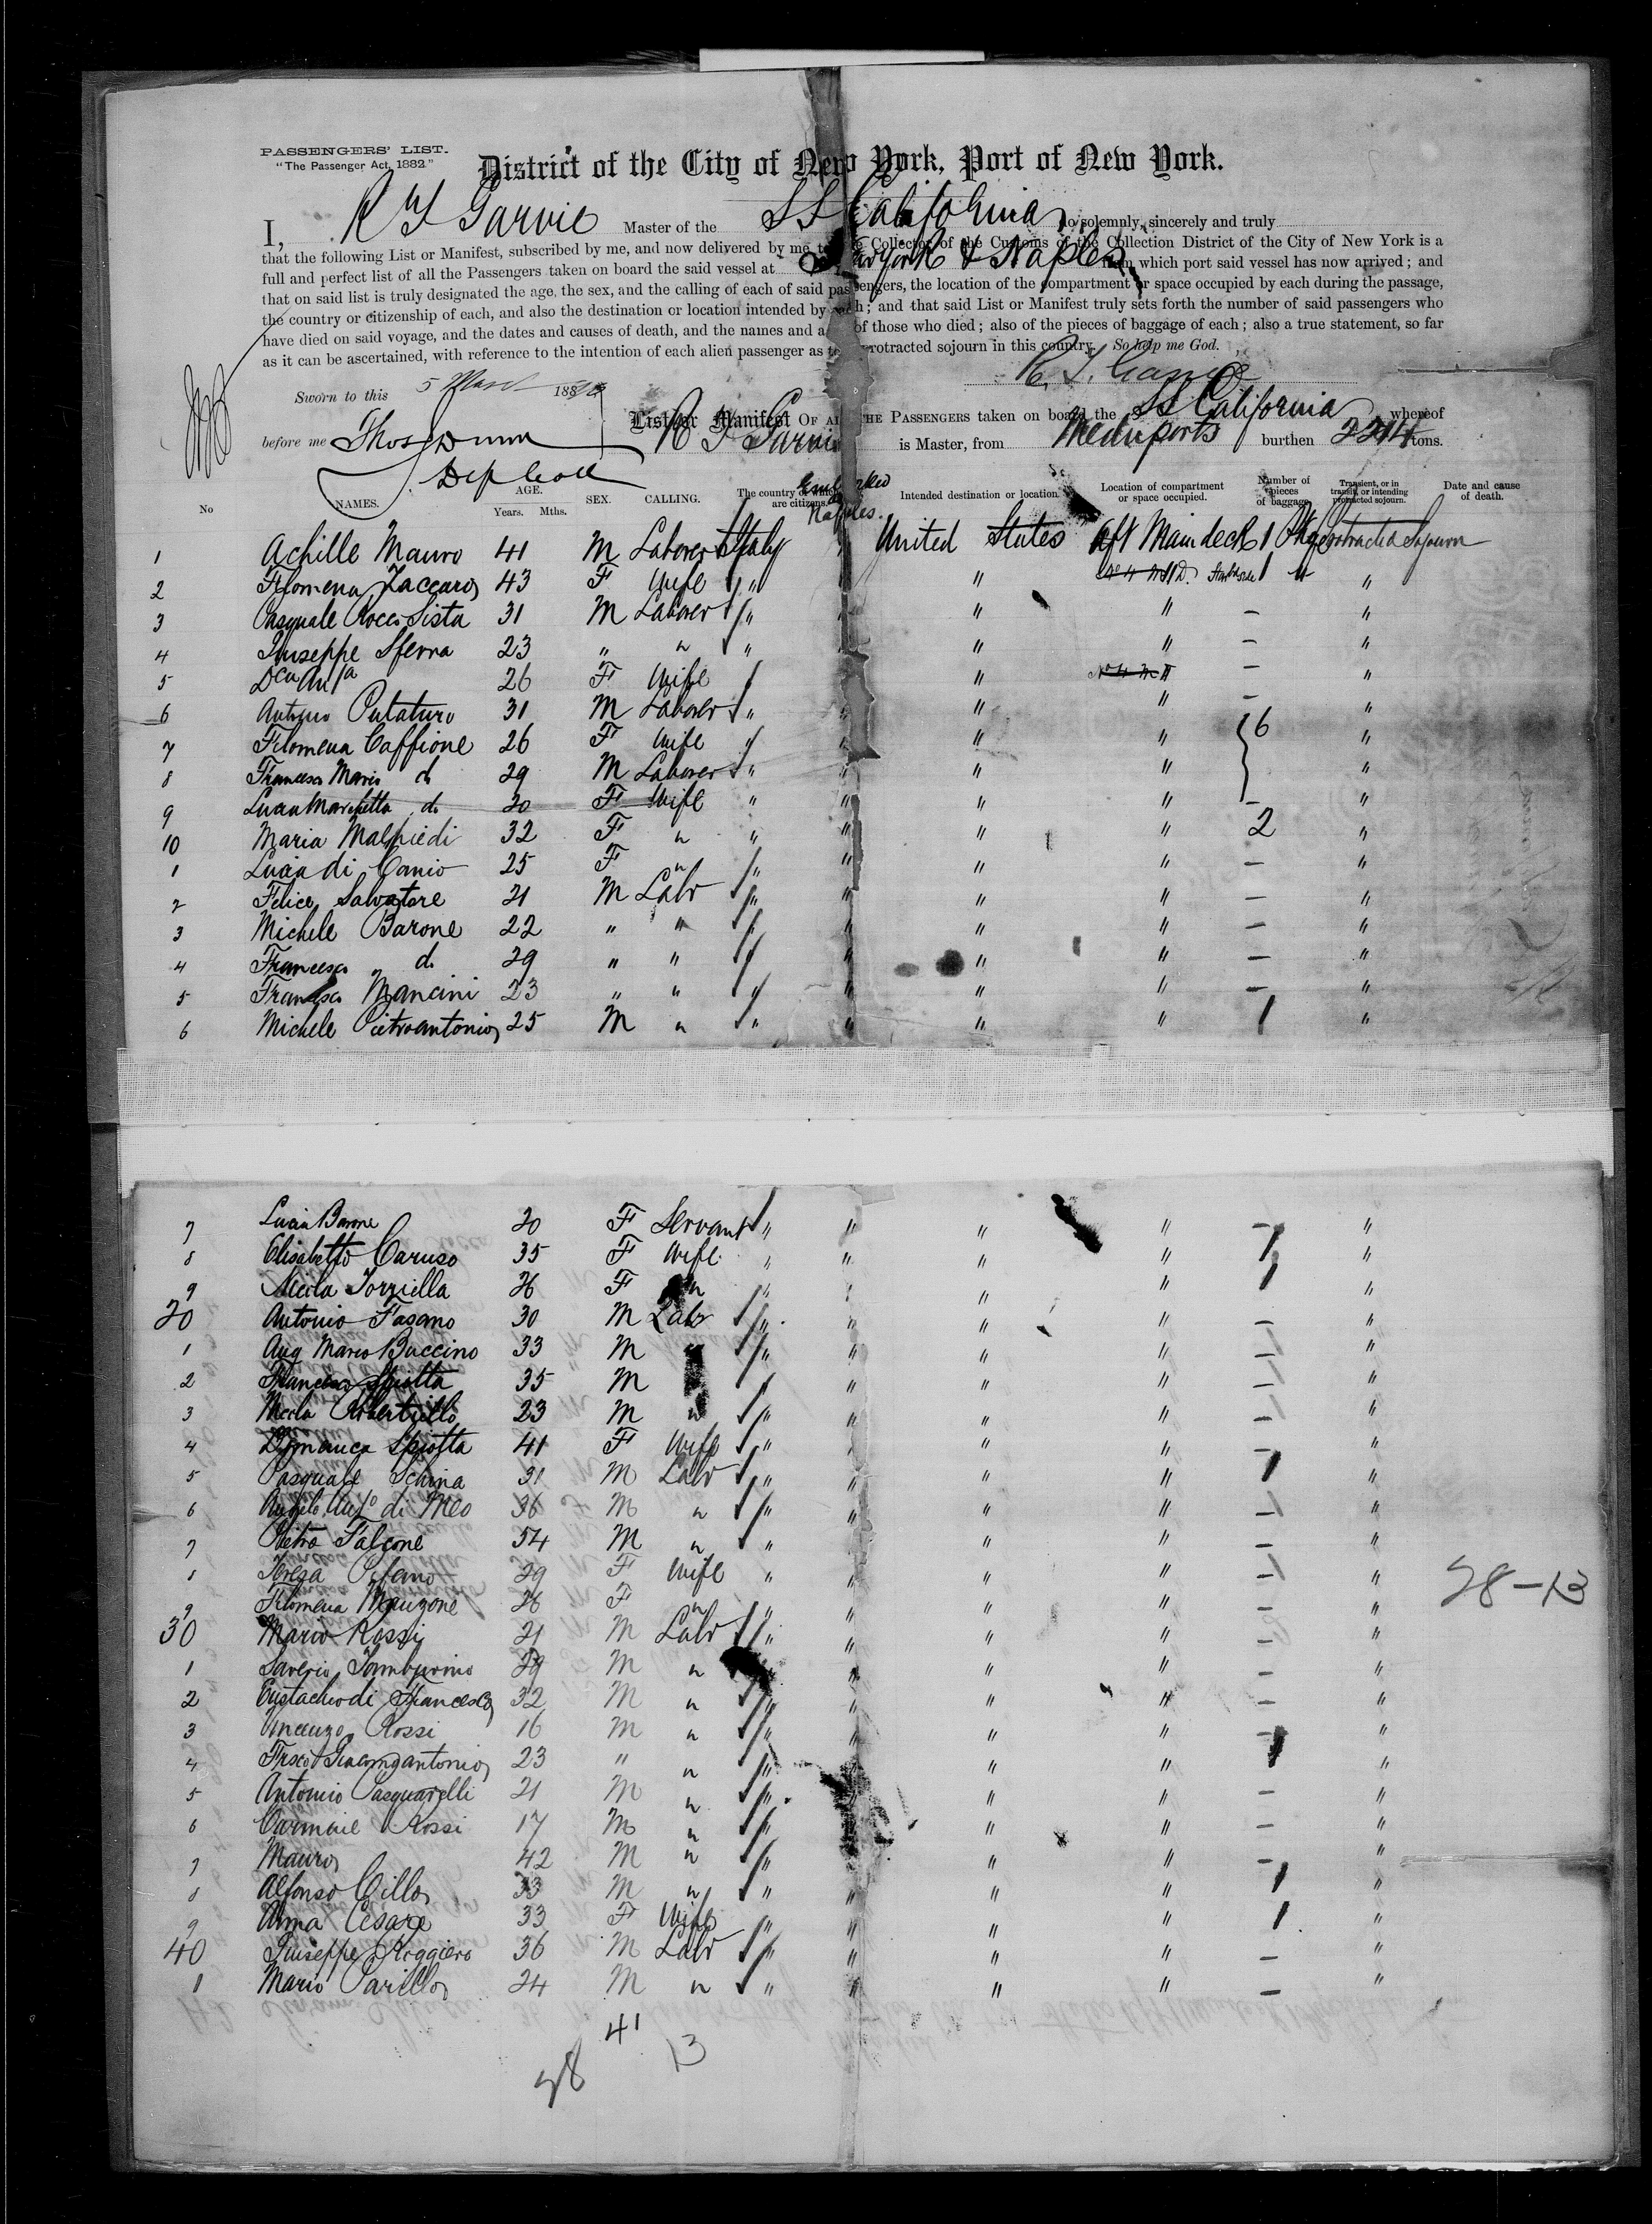 PASSENGERS' LIST.
"The Passenger Act, 1882."
District of the City of New York, Port of New York.
I, R J Garvie Master of the SS California do solemnly, sincerely and truly
that the following List or Manifest, subscribed by me, and now delivered by me to the Collector of the Customs of the Collection District of the City of New York is a
full and perfect list of all the Passengers taken on board the said vessel at New York & Naples from which port said vessel has now arrived; and
that on said list is truly designated the age, the sex, and the calling of each of said passengers, the location of the compartment or space occupied by each during the passage,
the country or citizenship of each, and also the destination or location intended by each; and that said List or Manifest truly sets forth the number of said passengers who
have died on said voyage, and the dates and causes of death, and the names and a of those who died; also of the pieces of baggage of each; also a true statement, so far
as it can be ascertained, with reference to the intention of each alien passenger as to protracted sojourn in this country. So help me God.
R. J. Garvie
Sworn to this 5 March 188
before me Thos Dunn
Dep Coll
List or Manifest OF ALL THE PASSENGERS taken on board the SS California whereof
R J Garvie is Master, from Meditn ports burthen 2214 tons.
No NAMES. AGE. Years. Mths. SEX. CALLING. The country of which are citizens. Embarked Naples. Intended destination or location. Location of compartment or space occupied. Number of pieces of baggage. Transient, or in transit, or intending protracted sojourn. Date and cause of death.
1 Achille Mauro 41 M Laborer Italy " United States Aft Main deck 1 Pkg Protracted Sojourn
2 Filomena Zaccaro 43 F Wife " " " "
3 Pasquale Rocco Sista 31 M Laborer " " " " — "
4 Giuseppe Sferra 23 " " " " " " — "
5 Dca Anta 26 F Wife " " — "
6 Antonio Putaturo 31 M Laborer " " " " — "
7 Filomena Caffione 26 F Wife " " " " 6 "
8 Francesco Mario do 29 M Laborer " " " " "
9 Lucia Marchetta do 20 F Wife " " " " — "
10 Maria Malpiedi 32 F " " " " " 2 "
1 Lucia di Canio 25 F " " " " " — "
2 Felice Salvatore 21 M Labr " " " " — "
3 Michele Barone 22 " " " " " " — "
4 Francesco do 29 " " " " " " — "
5 Francesco Mancini 23 " " " " " " — "
6 Michele Pietroantonio 25 M " " " " " 1 "
7 Lucia Barone 20 F Servant " " " " — "
8 Elisabetta Caruso 35 F Wife " " " " 1 "
9 Torziella 26 F " " " " " 1 "
20 Antonio Fasano 30 M Labr " " " " — "
1 Ang Mario Buccino 33 M " " " " " — "
2 Francesco Spiotta 35 M " " " " — "
3 23 M " " " " " — "
4 Domenica Spiotta 41 F Wife " " " " — "
5 Pasquale Schina 31 M Labr " " " " 1 "
6 Angelo Anto di Meo 36 M " " " " " — "
7 Pietro Falcone 54 M " " " " " — "
8 Teresa 29 F Wife " " " " — "
9 Filomena Manzone 26 F " " " " " — "
28-13
30 Mario Rossi 21 M Labr " " " " — "
1 Saverio Tamburino 29 M " " " " " — "
2 Eustachio di Francesco 32 M " " " " " — "
3 Vincenzo Rossi 16 M " " " " " — "
4 Frsco Giacomoantonio 23 " " " " " " 1 "
5 Antonio Pasquarelli 21 M " " " " " — "
6 Carmine Rossi 17 M " " " " " — "
7 Mauro 42 M " " " " " — "
8 Alfonso Cillo 33 M " " " " " 1 "
9 Anna Cesare 33 F Wife " " " " 1 "
40 Giuseppe Roggiero 36 M Labr " " " " — "
1 Mario Parillo 24 M " " " " " — "
41
28 13